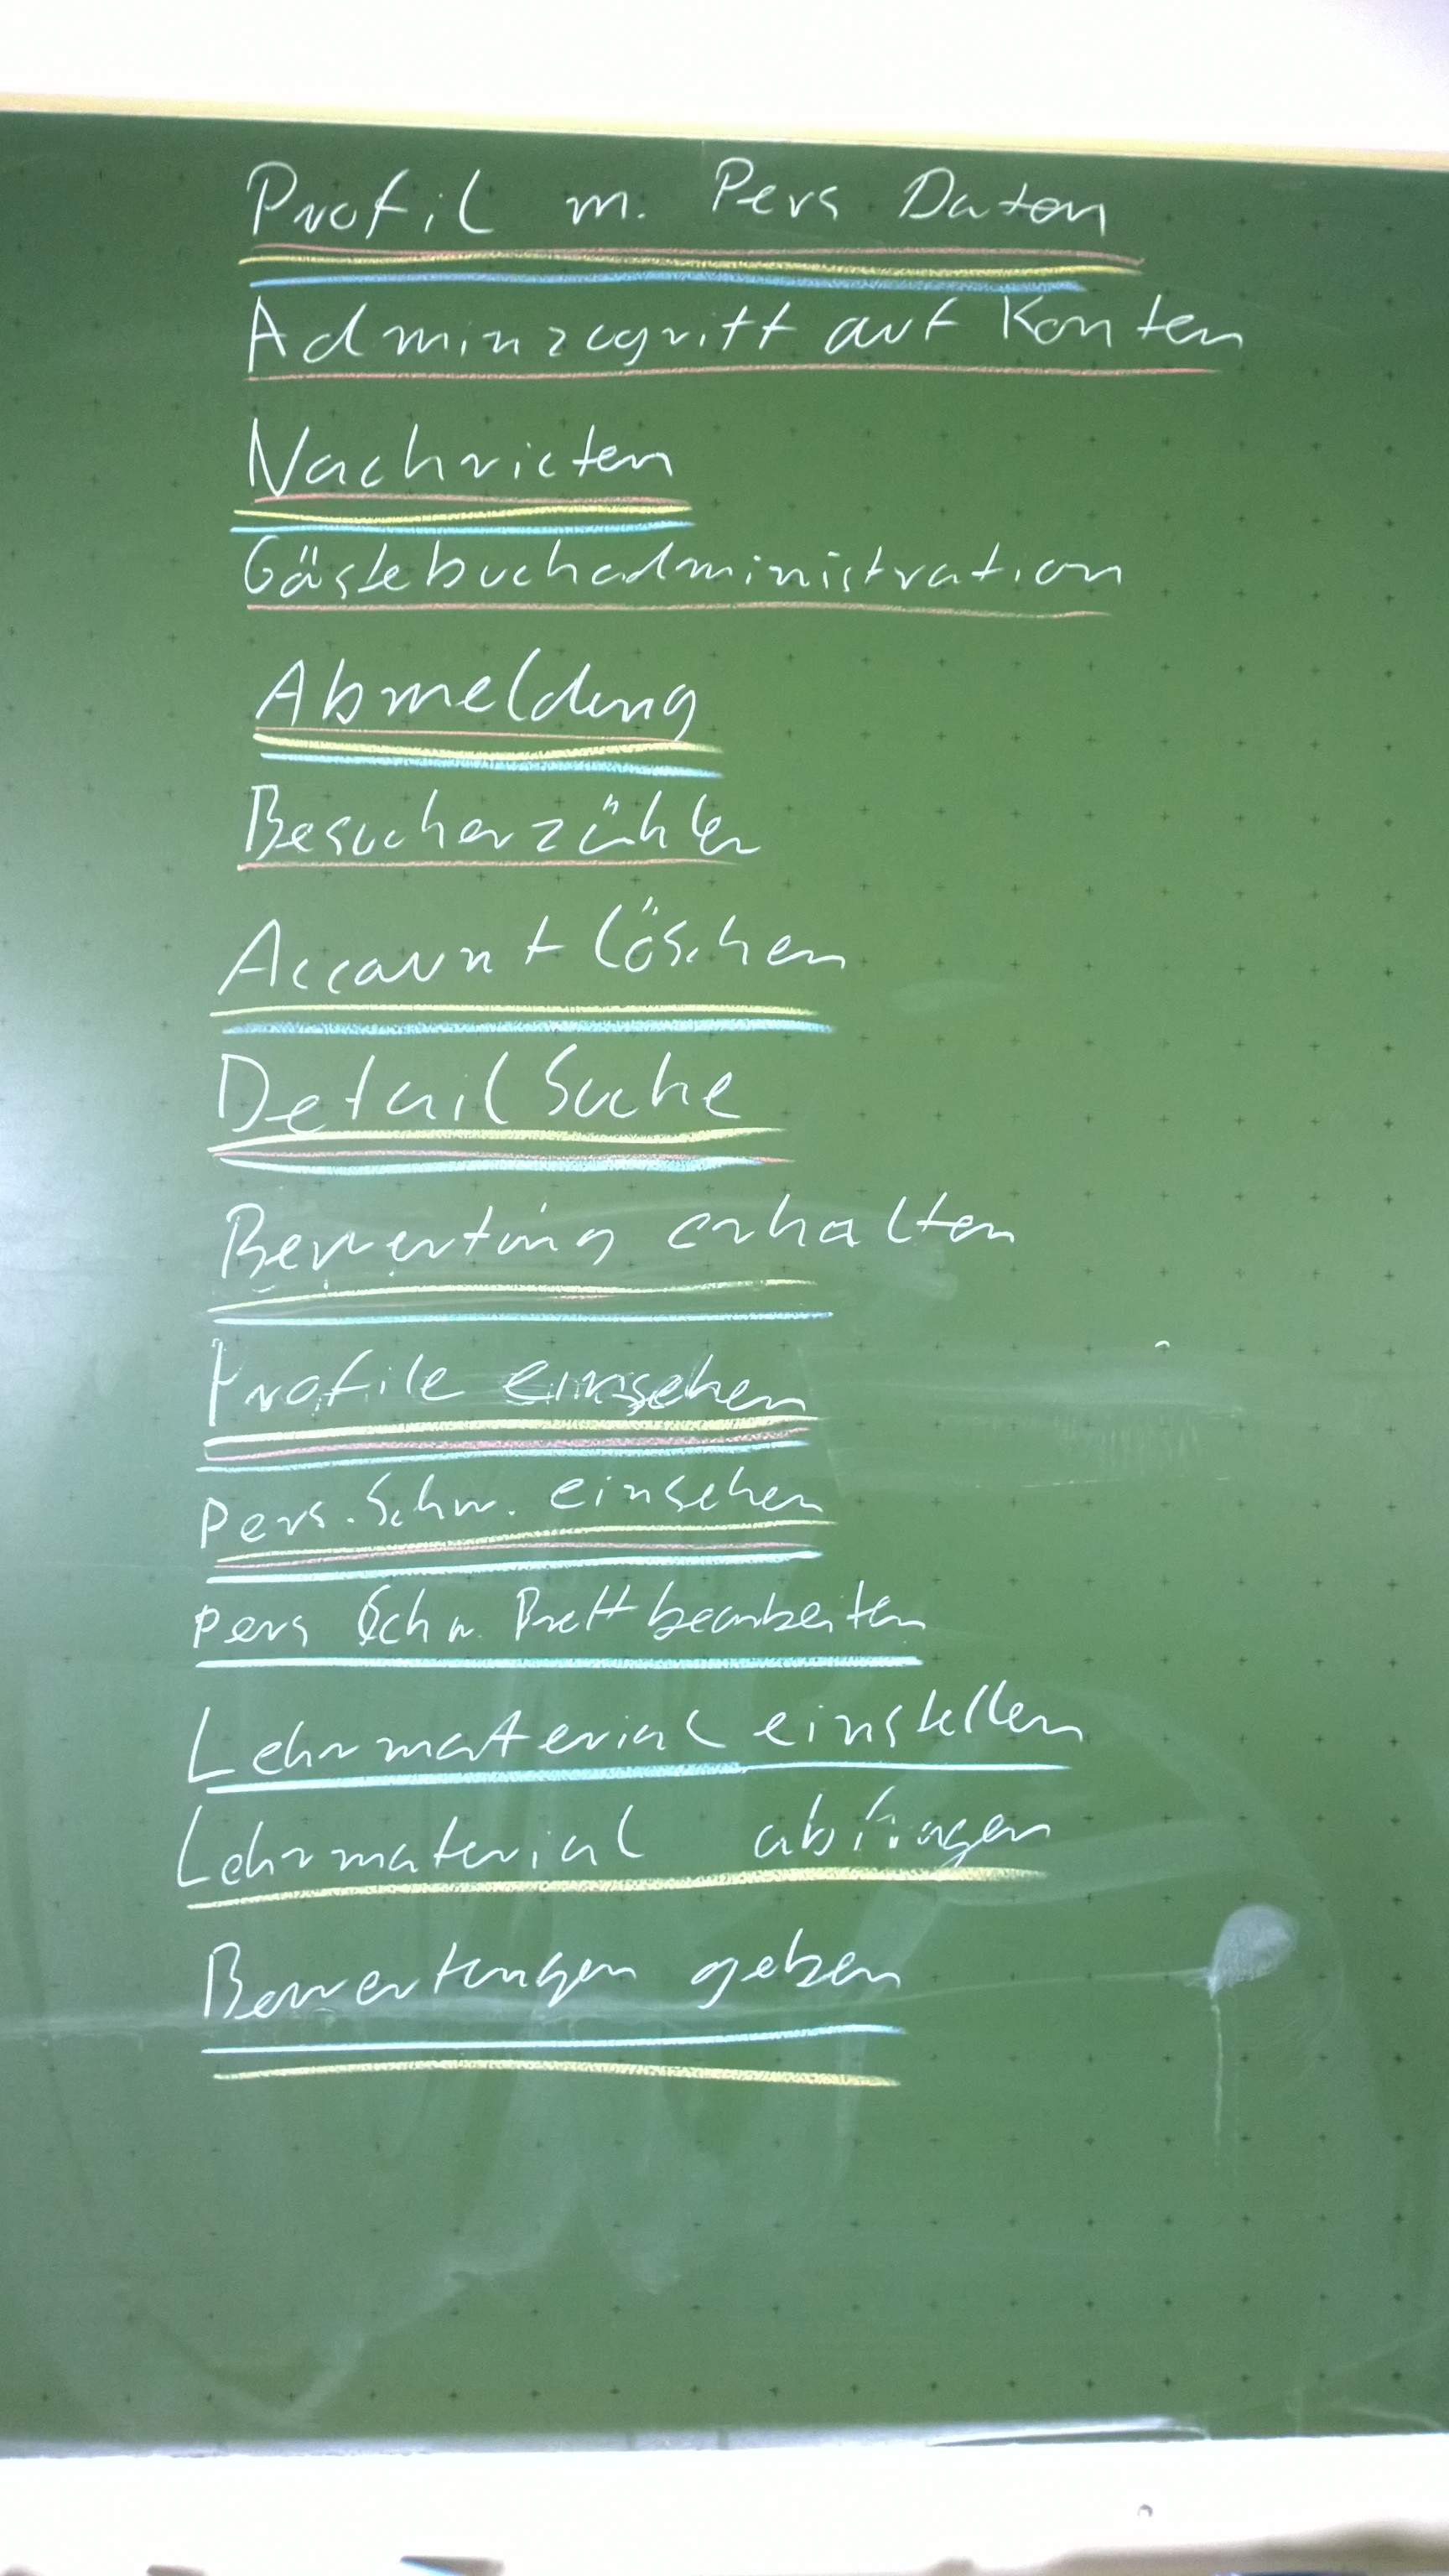 Profil m. Pers Daten
Adminzugriff auf Konten
Nachricten
Gästebuchadministration
Abmeldung
Besucherzähler
Account löschen
Detail Suche
Bewertung erhalten
Profile einsehen
Pers. Schw. einsehen
pers Schw. Brett bearbeiten
Lehrmaterial einstellen
Lehrmaterial abfragen
Bewertungen geben